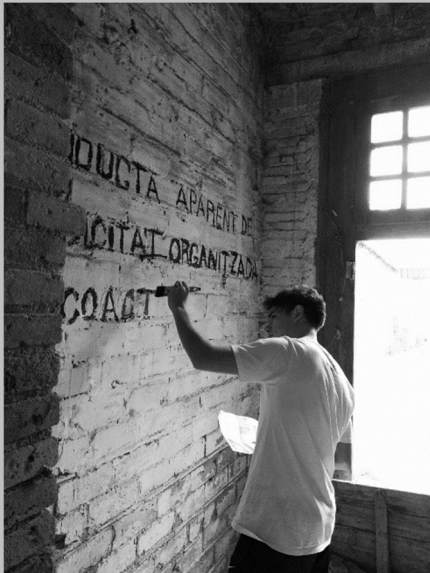 DUCTA APARENT DE
ICITAT ORGANITZADA
COACT